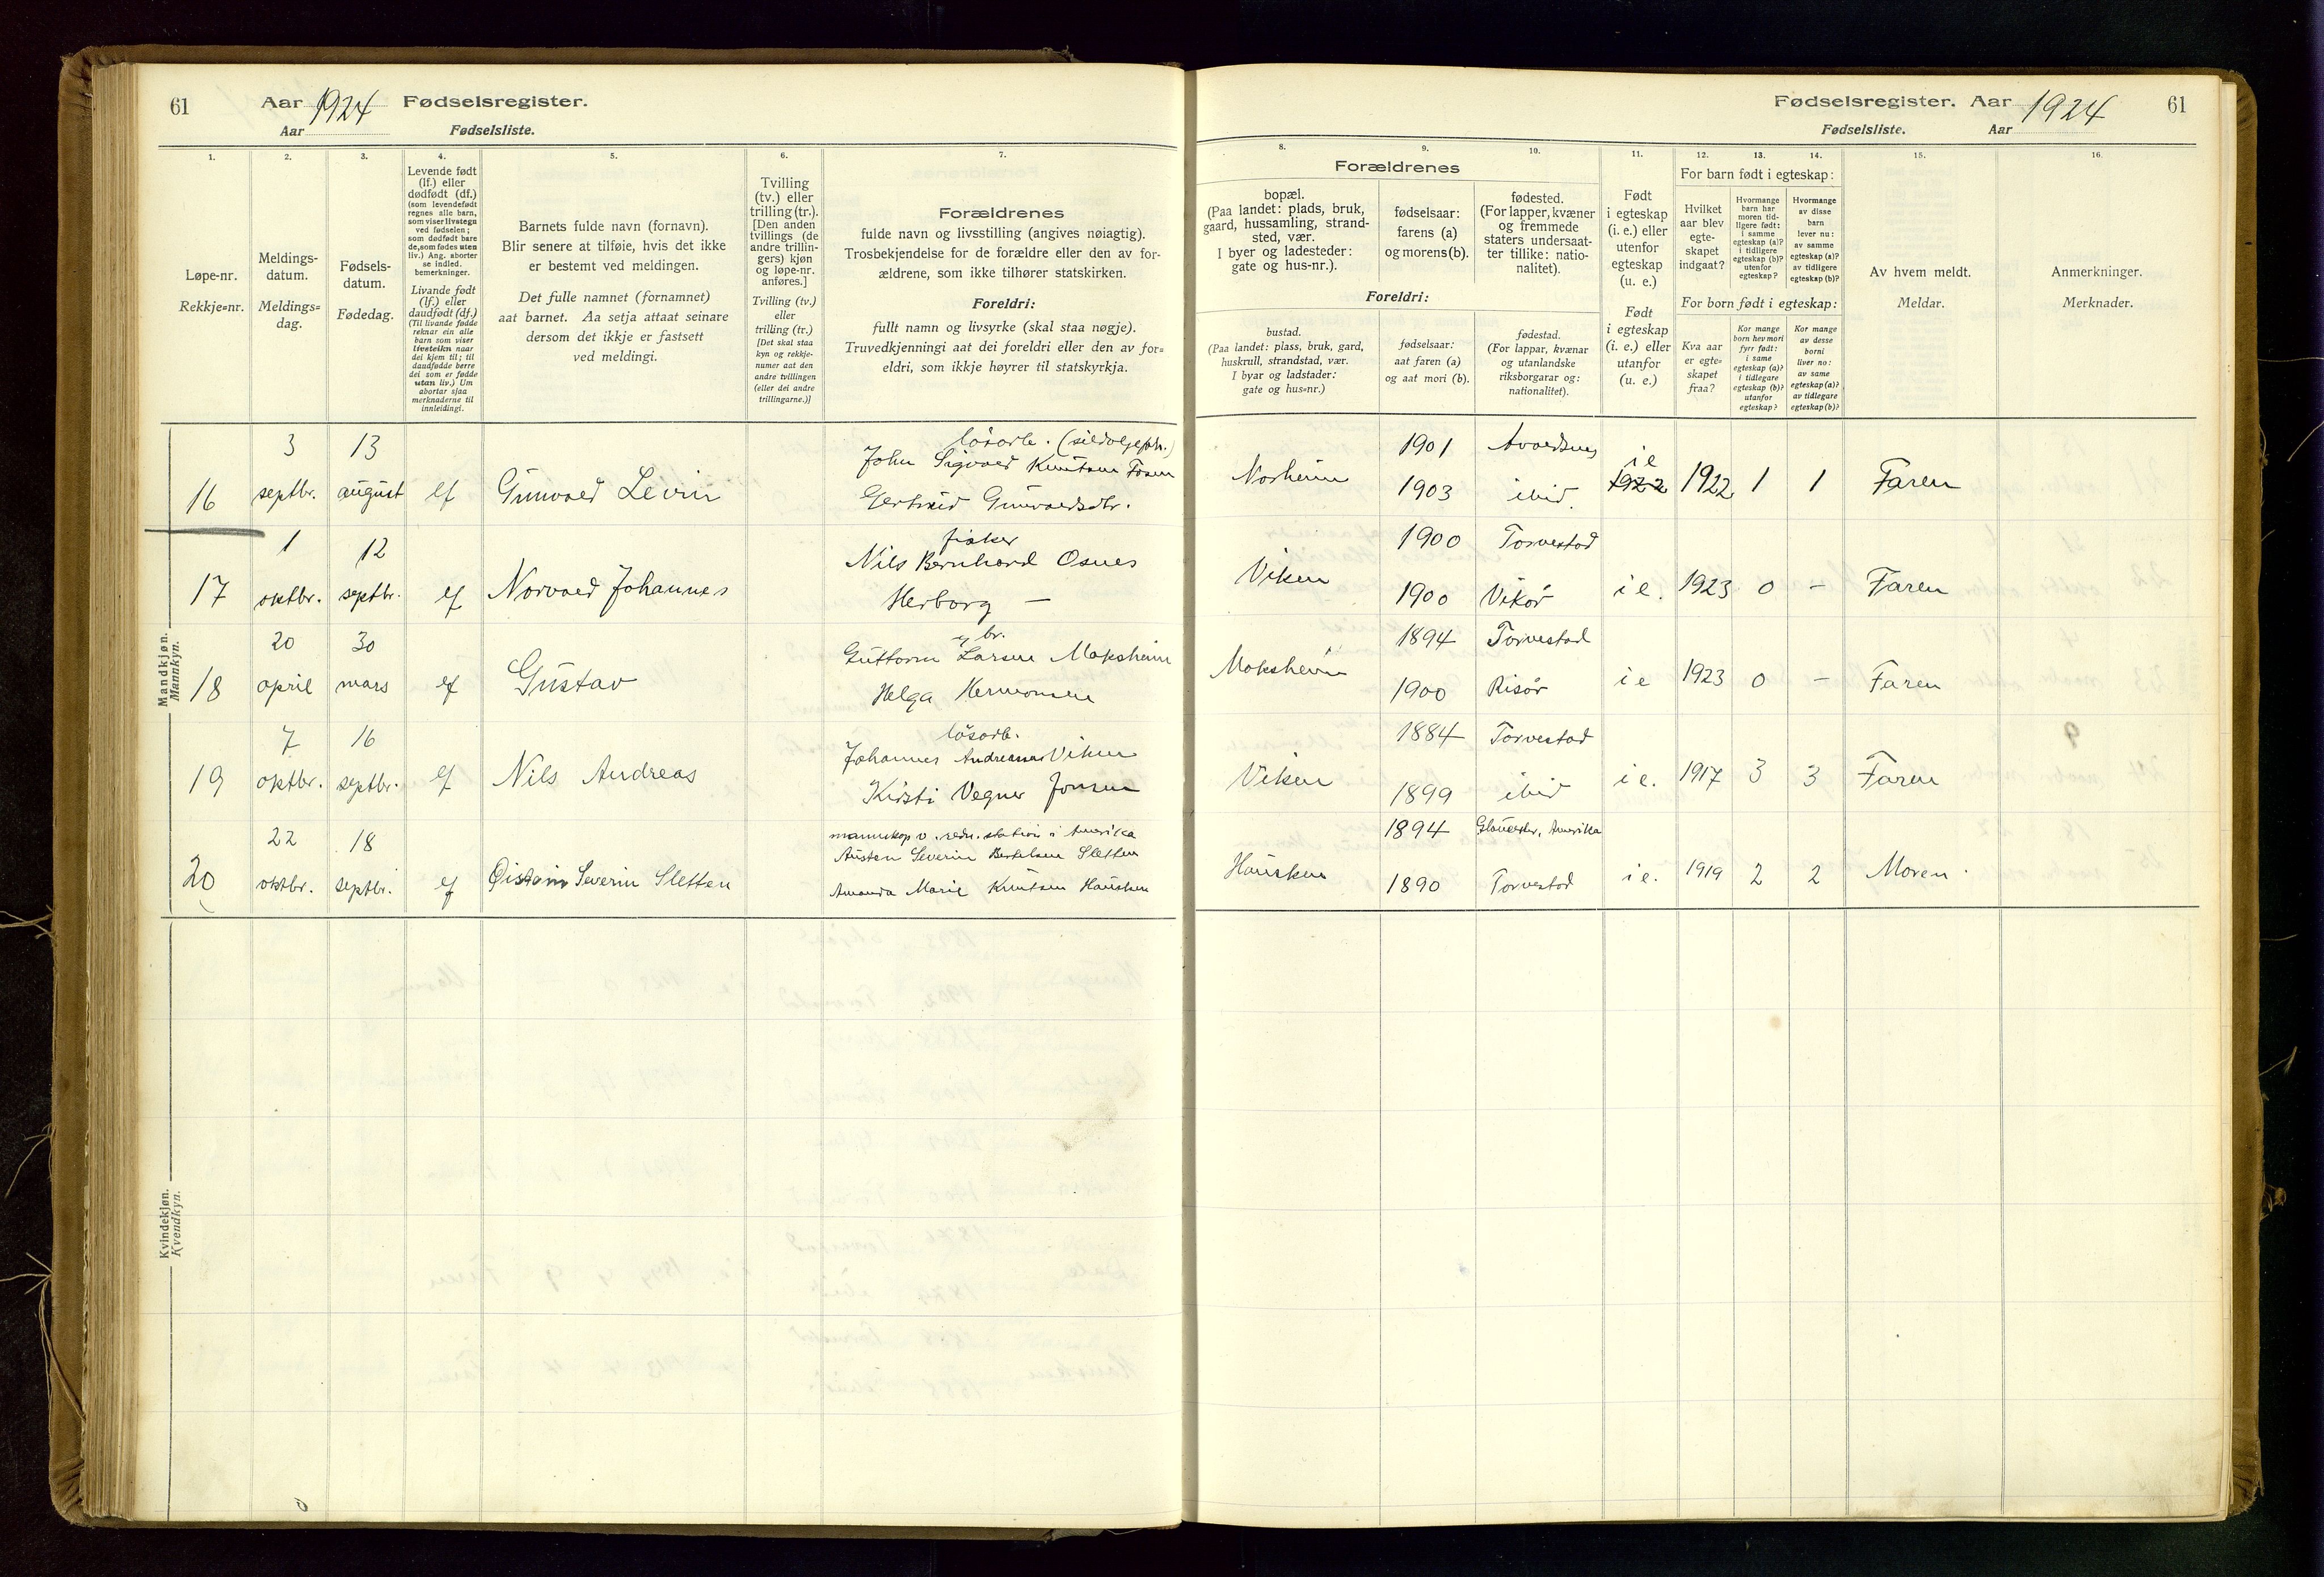 61 Aar 1924 Fødselsregister.
Aar Fødselsliste.
Fødselsregister. Aar 1924 61
Fødselsliste. Aar
1. 2. 3. 4. 5. 6. 7.
Løpe-nr.
Rekkje=nr.
Meldings-
datum.
Meldings=
dag.
Fødsels-
datum.
Fødedag.
Levende født
(lf.) eller
dødfødt (df.)
(som levendefødt
regnes alle barn,
som viser livstegn
ved fødselen;
som dødfødt bare
de, som fødes uten
liv.) Ang. aborter
se indled.
bemerkninger.
Livande født
(lf.) eller
daudfødt (df.)
(Til livande fødde
reknar ein alle
barn som viser
livsteikn naar
dei kjem til; til
daudfødde berre
dei som er fødde
utan liv.) Um
abortar sjaa
merknaderne til
innleidingi.
Barnets fulde navn (fornavn).
Blir senere at tilføie, hvis det ikke
er bestemt ved meldingen.
Det fulle namnet (fornamnet)
aat barnet. Aa setja attaat seinare
dersom det ikkje er fastsett
ved meldingi.
Tvilling
(tv.) eller
trilling (tr.).
[Den anden
tvillings (de
andre trillin-
gers) kjøn
og løpe-nr.
anføres.]
Tvilling (tv.)
eller
trilling (tr.)
[Det skal staa
kyn og rekkje-
numer aat den
andre tvillingen
(eller dei andre
trillingarne.)]
Forældrenes
fulde navn og livsstilling (angives nøiagtig).
Trosbekjendelse for de forældre eller den av for-
ældrene, som ikke tilhører statskirken.
Foreldri:
fullt namn og livsyrke (skal staa nøgje).
Truvedkjenningi aat dei foreldri eller den av for=
eldri, som ikkje høyrer til statskyrkja.
8. 9. 10. 11. 12. 13. 14. 15. 16.
Forældrenes
bopæl.
(Paa landet: plads, bruk,
gaard, hussamling, strand-
sted, vær.
I byer og ladesteder:
gate og hus-nr.).
fødselsaar:
farens (a)
og morens (b).
fødested.
(For lapper, kvæner
og fremmede
staters undersaat-
ter tillike: natio-
nalitet).
Foreldri:
bustad.
(Paa landet: plass, bruk, gard,
huskrull, strandstad, vær.
I byar og ladstader:
gate og hus=nr.)
fødselsaar:
aat faren (a)
og aat mori (b).
fødestad.
(For lappar, kvænar
og utanlandske
riksborgarar og:
nationalitet).
Født
i egteskap
(i. e.) eller
utenfor
egteskap
(u. e.)
Født
i egteskap
(i. e.) eller
utanfor
(u. e.)
For barn født i egteskap:
Hvilket
aar blev
egte-
skapet
indgaat?
Hvormange
barn har
moren tid-
ligere født:
i samme
egteskap (a)?
i tidligere
egteskap (b)?
utenfor
egteskap?
Hvormange
av disse
barn
lever nu:
av samme
egteskap (a)?
av tidligere
egteskap (b)?
For born født i egteskap:
Kva aar
er egte=
skapet
fraa?
Kor mange
born hev mori
fyrr født:
i same
egteskap (a)?
i tidlegare
egteskap (b)?
utanfor
egteskap?
Kor mange
av desse
borni
liver no:
av same
egteskap (a)?
av tidlegare
egteskap (b)?
Av hvem meldt.
Meldar.
Anmerkninger.
Merknader.
Mandkjøn.
Mannkyn.
16 3 septbr. 13 august lf Gunvald Levin
løsarb.
John Sigvald Knutsen Fosen
Gertruid Gunvaldsdtr.
Norheim 1901 Avaldsnes
1903 ibid. i e 1922 1922 1 1 Faren
17 1 oktbr. 12 septbr. lf Norvald Johannes
fisker
Nils Bernhard Osnes
Herborg —
Viken 1900 Torvestad
1900 Vikør i e. 1923 0 – Faren
18 20 april 30 mars lf Gustav
gbr.
Guttorm Larsen Moksheim
Helga Hermansen
Moksheim 1894 Torvestad
1900 Risør i e 1923 0 – Faren
19 7 oktbr. 16 septbr. lf Nils Andreas
løsarb.
Johannes Andreassen Viken
Kirsti Vegner Jonsen
Viken 1884 Torvestad
1899 ibid i e. 1917 3 3 Faren
20 22 oktbr. 18 septbr. lf Øistein Severin Sletten
mannskap v. redn. station i Amerika
Austen Severin Bertelsen Sletten
Amanda Marie Knutsen Hausken
Hausken 1894 Gloucester, Amerika
1890 Torvestad i e. 1919 2 2 Moren
Kvindekjøn.
Kvendkyn.